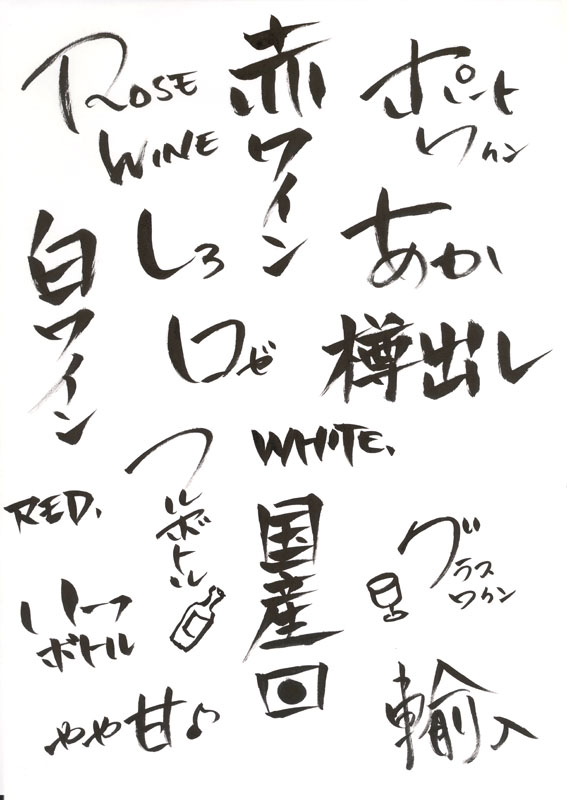 ROSE
WINE
赤ワイン
ポート
ワイン
白ワイン
しろ
あか
ロゼ
樽出し
WHITE.
RED.
フルボトル
国産
グラス
ワイン
ハーフ
ボトル
やや甘♪
輸入